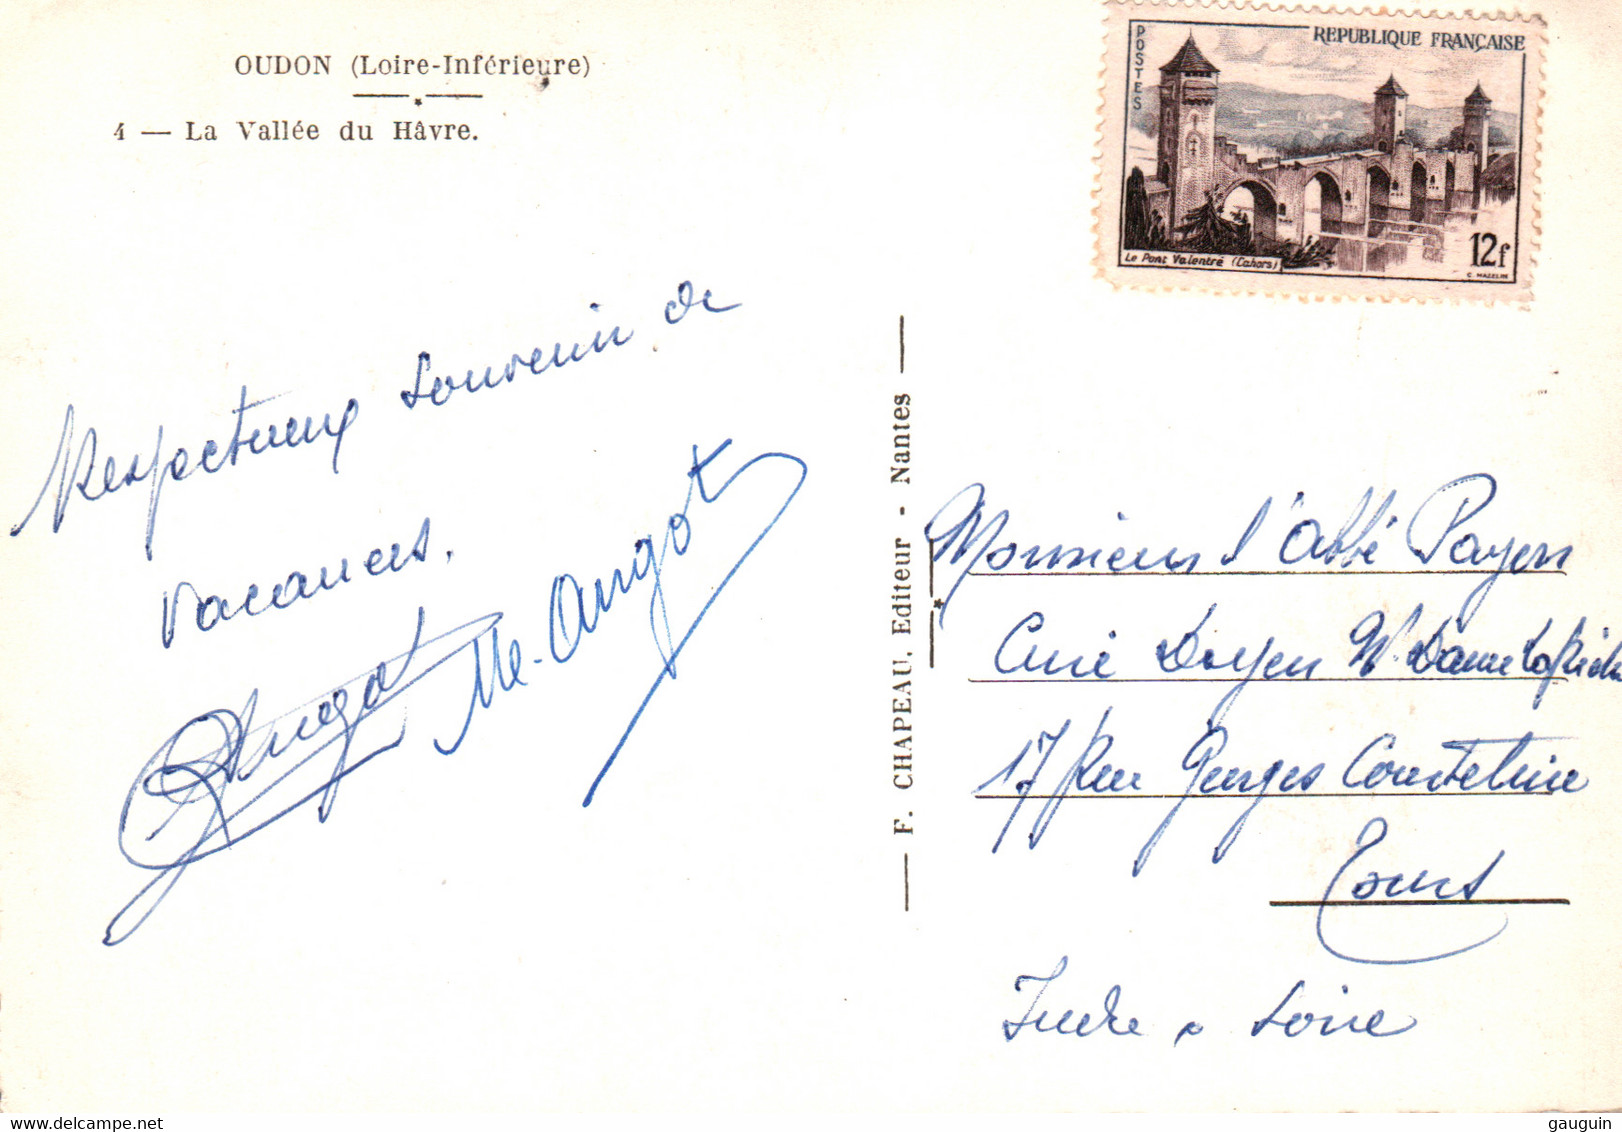 OUDON (Loire-Inférieure)
4 — La Vallée du Hâvre.
Respectueux souvenir de
vacances.
Angot
Me. Angot
F. CHAPEAU, Editeur - Nantes
POSTES
REPUBLIQUE FRANÇAISE
Le Pont Valentré (Cahors)
12f
C. MAZELIN
Monsieur l'Abbé Payen
Curé Doyen N. Dame la Riche
17 Rue Georges Courteline
Tours
Indre & Loire
gauguin © delcampe.net